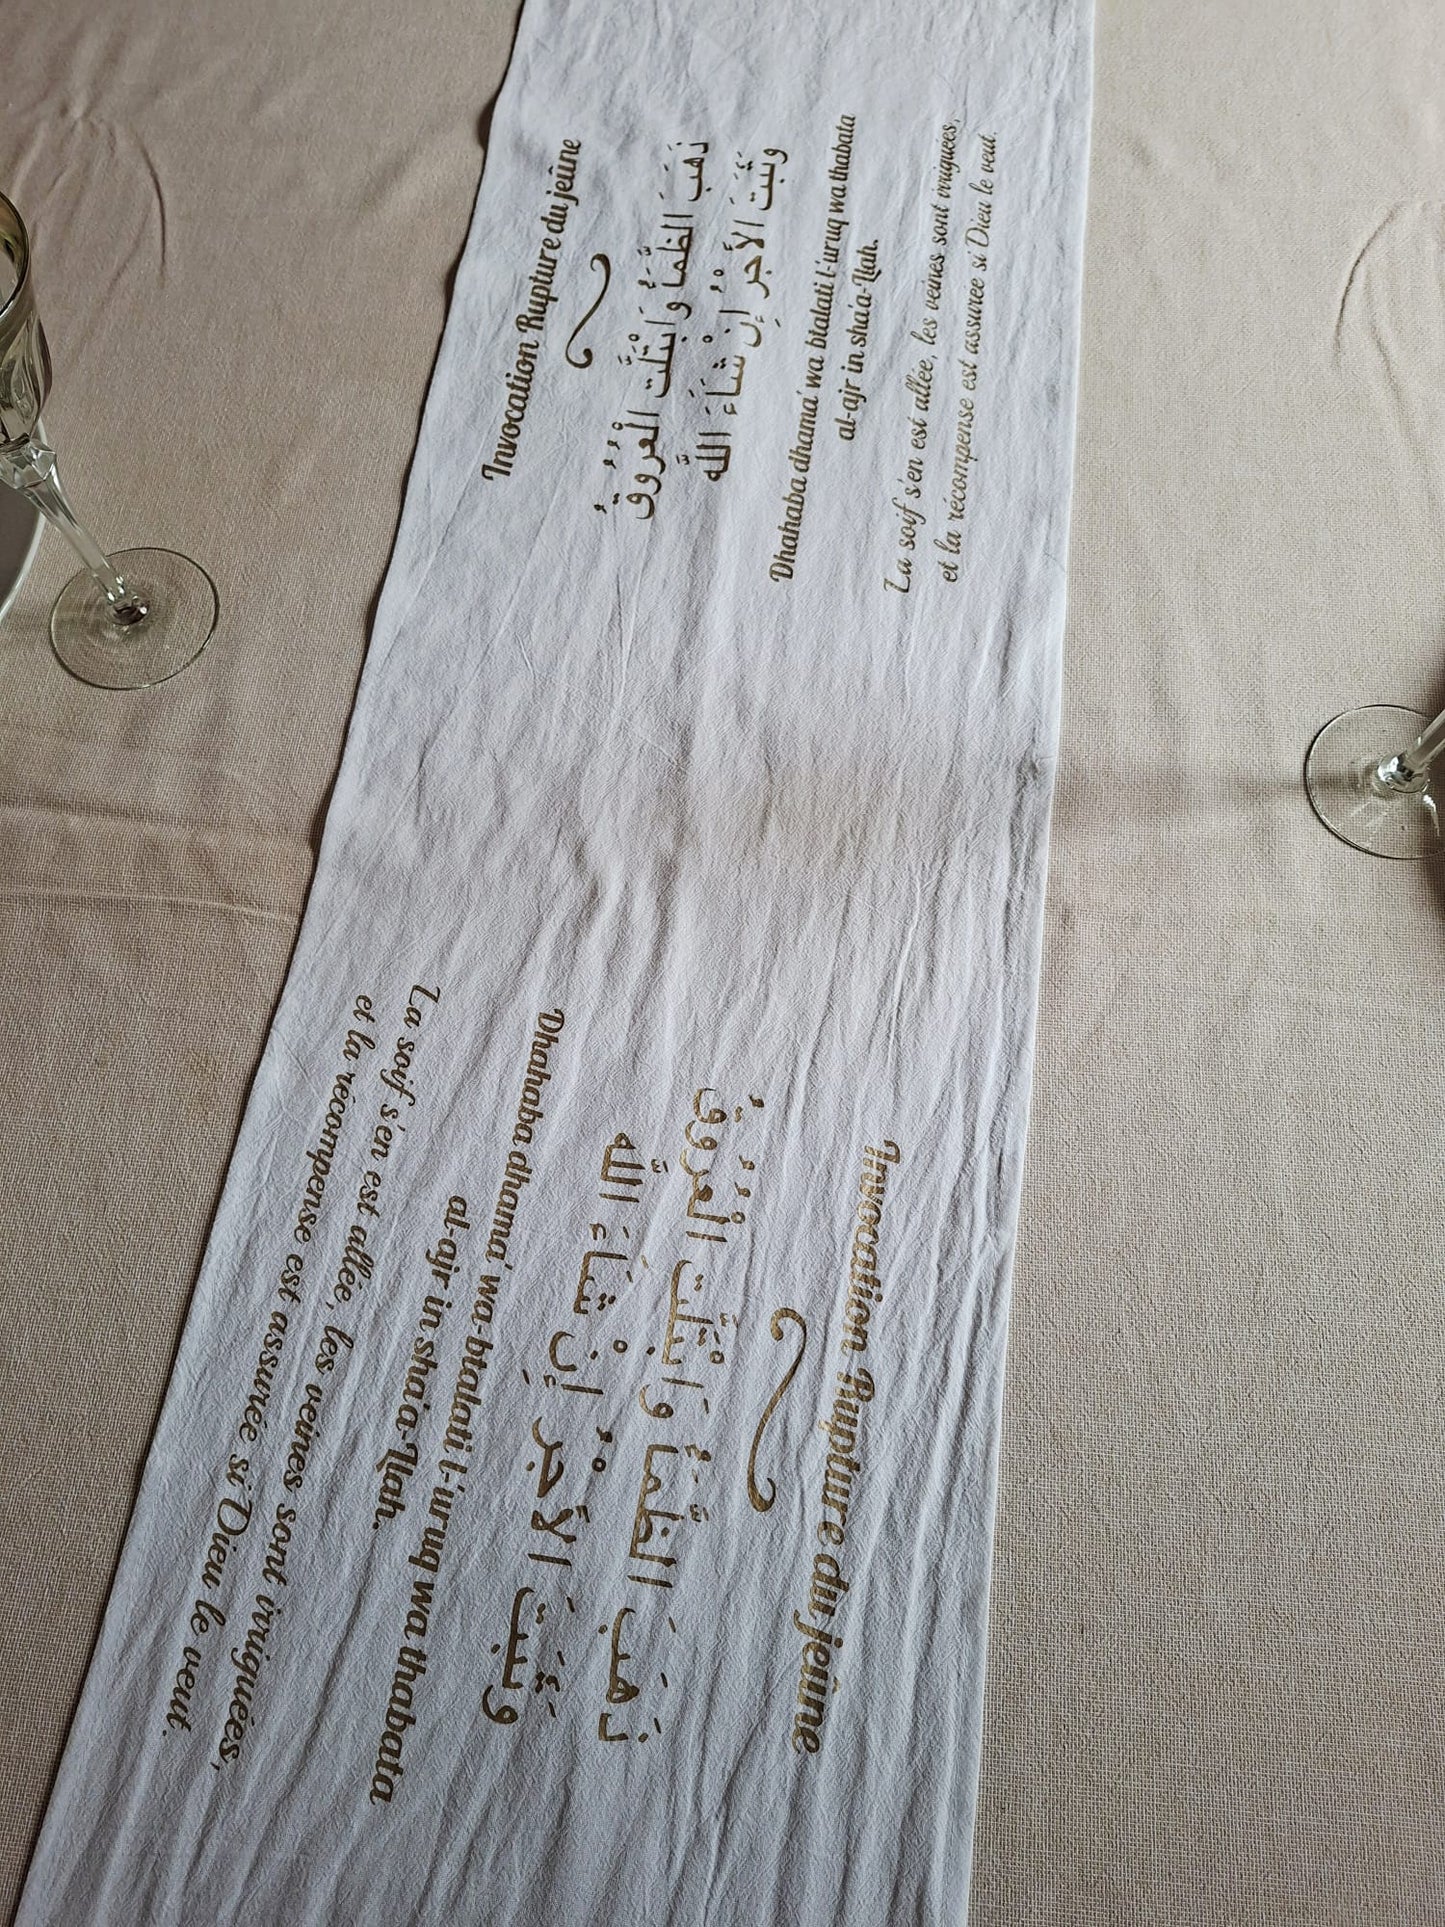 Invocation Rupture du jeûne
ذَهَبَ الظَّمَأُ وَابْتَلَّتِ الْعُرُوقُ
وَثَبَتَ الأَجْرُ إِنْ شَاءَ اللَّه
Dhahaba dhama' wa btalati l-'uruq wa thabata
al-ajr in sha'a-Llah.
La soif s'en est allée, les veines sont irriguées,
et la récompense est assurée si Dieu le veut.
Invocation Rupture du jeûne
ذَهَبَ الظَّمَأُ وَابْتَلَّتِ الْعُرُوقُ
وَثَبَتَ الأَجْرُ إِنْ شَاءَ اللَّه
Dhahaba dhama' wa-btalati l-'uruq wa thabata
al-ajr in sha'a-Llah.
La soif s'en est allée, les veines sont irriguées,
et la récompense est assurée si Dieu le veut.